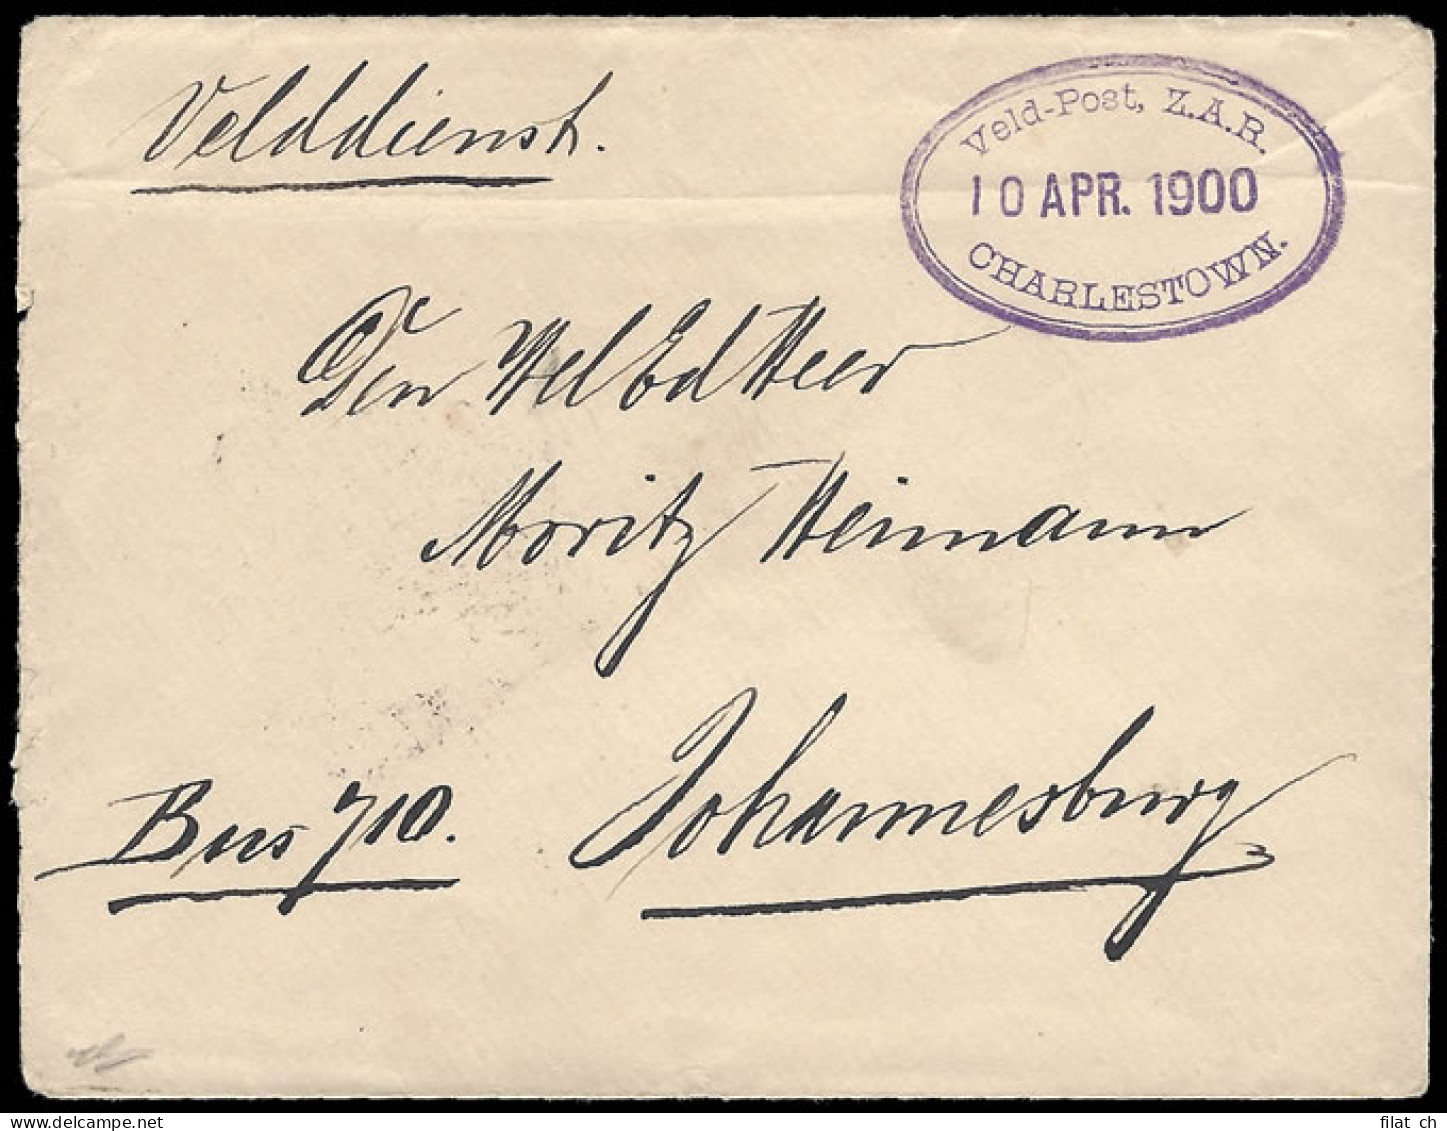 Velddienst.
Veld-Post, Z.A.R.
10 APR. 1900
CHARLESTOWN.
Den Wel Ed Heer
Moritz Heimann
Bus 710.
Johannesburg
filat ch